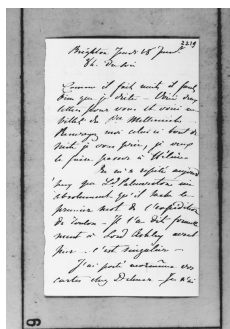 2219
Brighton Jeudi 18 Juin
8h. du soir
Comme il fait nuit il faut
bien que je dicte - Voici deux
lettres pour vous et voici un
billet de Me Metternich
Renvoyez moi celui ci tout de
suite je vous prie, je veux
le faire passer à
On m'a répété aujourd'
hui que Ld Palmerston nie
absolument qu'il sache le
premier mot de l'expédition
de Toulon. Il l'a dit formelle
ment à Lord Ashley avant
hier - c'est singulier -
J'ai porté moi même vos
cartes chez Je n'ai
9